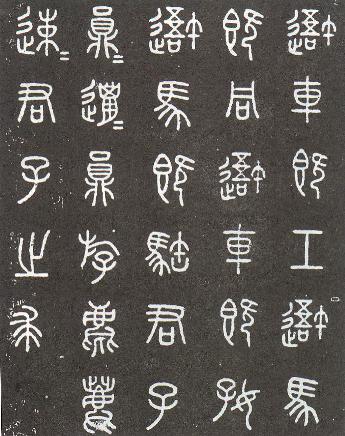 吾車既工吾馬
既同吾車既好
吾馬既駂君子
員〻邋〻員斿麀鹿
速〻君子之求